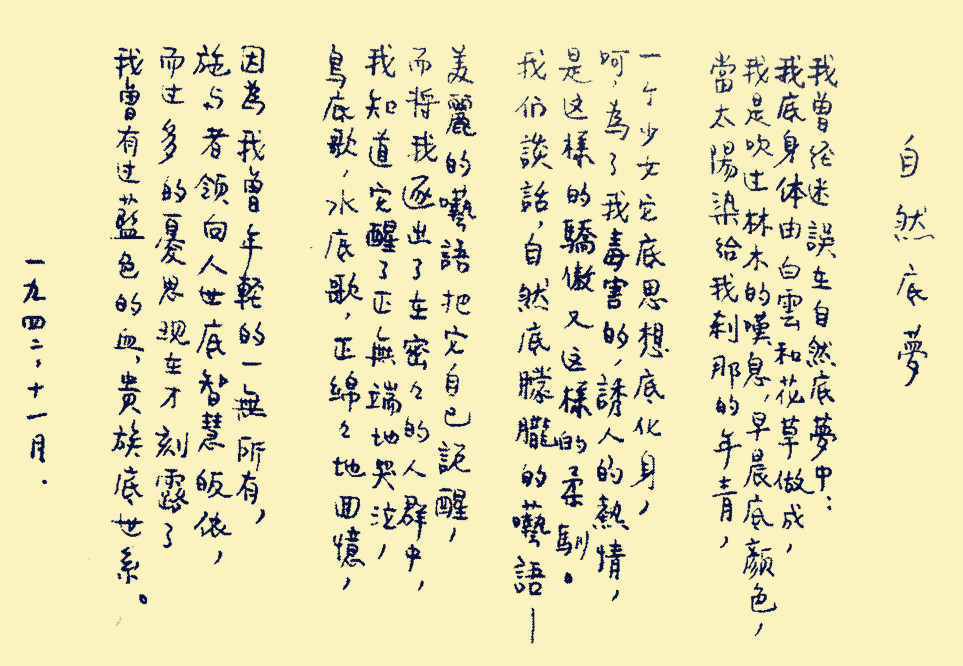 自然底夢
我曾经迷誤在自然底夢中；
我底身体由白雲和花草做成，
我是吹过林木的嘆息，早晨底顏色，
當太陽染給我刹那的年青，
一个少女它底思想底化身，
呵，為了我毒害的，誘人的熱情，
是这樣的驕傲又这樣的柔馴。
我们談話，自然底朦朧的囈語—
美麗的囈語把它自己説醒，
而将我逐出了在密々的人群中，
我知道它醒了正無端地哭泣，
鳥底歌，水底歌，正綿々地回憶，
因為我曾年輕的一無所有，
施与者領向人世底智慧皈依，
而过多的憂思现在才刻露了
我曾有过藍色的血，貴族底世系。
一九四二，十一月．